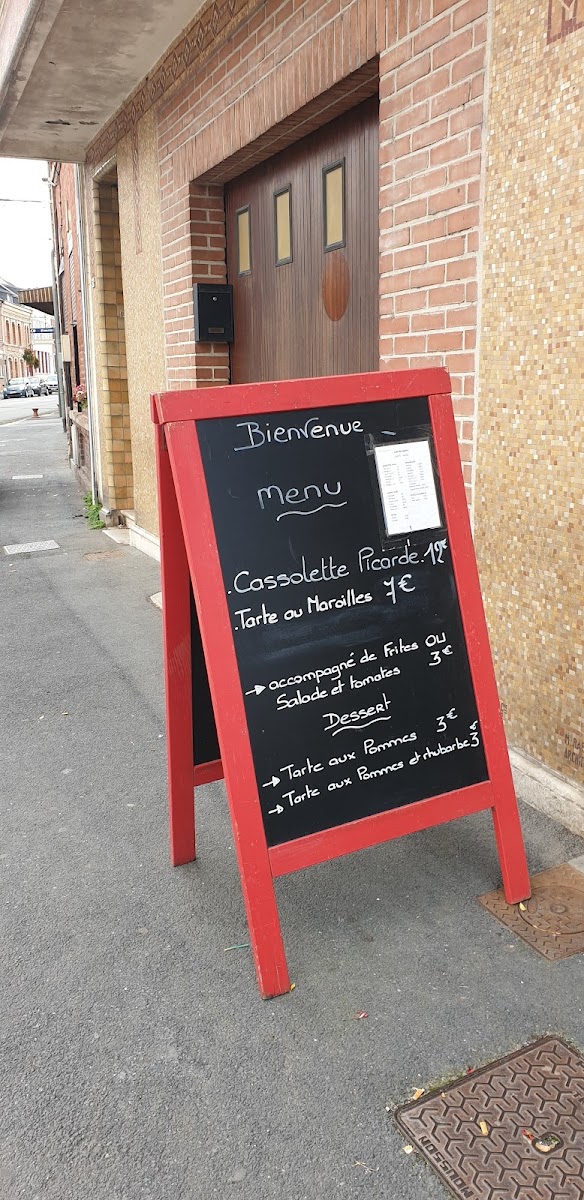 Bienvenue
Menu
.Cassolette Picarde.12€
.Tarte au Maroilles 7€
→ accompagné de Frites OU
Salade et tomates 3€
Dessert
→ Tarte aux Pommes 3€
→ Tarte aux Pommes et rhubarbe 3€